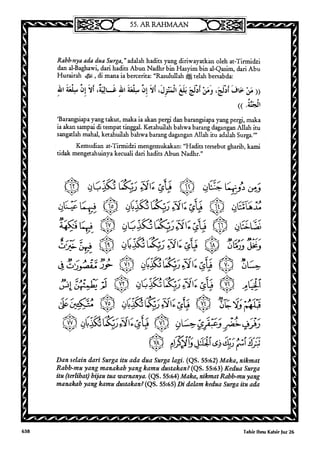 55. AR RAHMAAN
Rabb-nya ada dua Surga," adalah hadits yang diriwayatkan oleh at-Tirmidzi
dan al-Baghawi, dari hadits Abun Nadhr bin Hasyim bin al-Qasim, dari Abu
Hurairah ؓ, di mana ia bercerita: "Rasulullah ﷺ telah bersabda:
(( مَنْ خَافَ أَدْلَجَ، وَمَنْ أَدْلَجَ بَلَغَ الْمَنْزِلَ، أَلاَ إِنَّ سِلْعَةَ اللهِ غَالِيَةٌ، أَلاَ إِنَّ سِلْعَةَ اللهِ
الْجَنَّةُ. ))
'Barangsiapa yang takut, maka ia akan pergi dan barangsiapa yang pergi, maka
ia akan sampai di tempat tinggal. Ketahuilah bahwa barang dagangan Allah itu
sangatlah mahal, ketahuilah bahwa barang dagangan Allah itu adalah Surga.'"
Kemudian at-Tirmidzi mengemukakan: "Hadits tersebut gharib, kami
tidak mengetahuinya kecuali dari hadits Abun Nadhr."
وَمِن دُونِهِمَا جَنَّتَانِ ٦٢ فَبِأَيِّ ءَالَآءِ رَبِّكُمَا تُكَذِّبَانِ ٦٣
مُدْهَآمَّتَانِ ٦٤ فَبِأَيِّ ءَالَآءِ رَبِّكُمَا تُكَذِّبَانِ ٦٥ فِيهِمَا عَيْنَانِ
نَضَّاخَتَانِ ٦٦ فَبِأَيِّ ءَالَآءِ رَبِّكُمَا تُكَذِّبَانِ ٦٧ فِيهِمَا فَاكِهَةٌ
وَنَخْلٌ وَرُمَّانٌ ٦٨ فَبِأَيِّ ءَالَآءِ رَبِّكُمَا تُكَذِّبَانِ ٦٩ فِيهِنَّ خَيْرَاتٌ
حِسَانٌ ٧٠ فَبِأَيِّ ءَالَآءِ رَبِّكُمَا تُكَذِّبَانِ ٧١ حُورٌ مَّقْصُورَاتٌ فِي
الْخِيَامِ ٧٢ فَبِأَيِّ ءَالَآءِ رَبِّكُمَا تُكَذِّبَانِ ٧٣ لَمْ يَطْمِثْهُنَّ إِنسٌ
قَبْلَهُمْ وَلَا جَآنٌّ ٧٤ فَبِأَيِّ ءَالَآءِ رَبِّكُمَا تُكَذِّبَانِ ٧٥ مُتَّكِئِينَ عَلَى
رَفْرَفٍ خُضْرٍ وَعَبْقَرِيٍّ حِسَانٍ ٧٦ فَبِأَيِّ ءَالَآءِ رَبِّكُمَا تُكَذِّبَانِ ٧٧
تَبَارَكَ اسْمُ رَبِّكَ ذِي الْجَلَالِ وَالْإِكْرَامِ ٧٨
Dan selain dari Surga itu ada dua Surga lagi. (QS. 55:62) Maka, nikmat
Rabb-mu yang manakah yang kamu dustakan? (QS. 55:63) Kedua Surga
itu (terlihat) hijau tua warnanya. (QS. 55:64) Maka, nikmat Rabb-mu yang
manakah yang kamu dustakan? (QS. 55:65) Di dalam kedua Surga itu ada
638
Tafsir Ibnu Katsir Juz 26